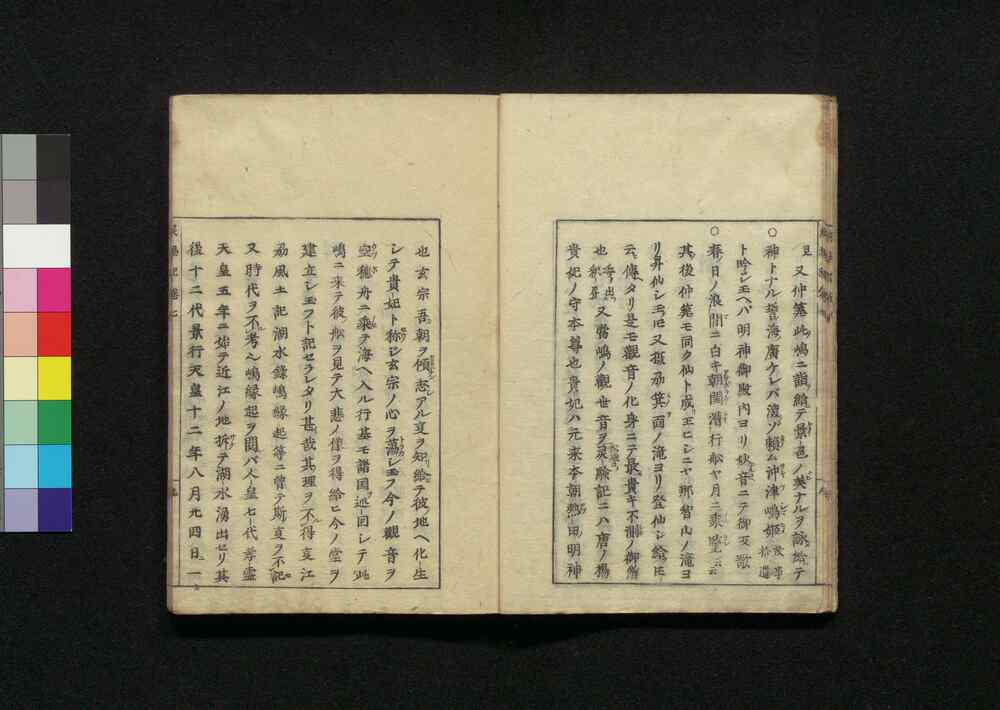 見又仲算此嶋ニ詣給テ景色ノ美ナルヲ詠給テ
○神トナル誓海廣ケレバ猶ゾ頼ム沖津嶋姫
ト吟シ玉ヘバ明神御殿内ヨリ妙音ニテ御返歌
○春ノ日ノ浪間ニ白キ朝開漕行舩ヤ月ニ乗
其後仲算モ同ク仙ト成玉ヒシニヤ那智ノ滝ヨ
リ昇仙シ玉ヒ又摂刕箕面ノ滝ヨリ登仙シ給ヒ
云傳タリ是モ觀音ノ化身ニテ最貴キ不測ノ御僧
也 又當嶋ノ觀世音ヲ霊験記ニハ唐ノ楊
貴妃ノ守本尊也貴妃ハ元来本朝熱田明神
也玄宗吾朝ヲ傾志アル支ヲ知給テ彼地ヘ化生
シテ貴妃ト称シ玄宗ノ心ヲ蕩シ玉フ今ノ觀音ヲ
空穂舟ニ乗テ海ヘ入ル行基モ諸国巡回シテ此
嶋ニ来テ彼舩ヲ見テ大悲ノ像ヲ得給ヒ今ノ堂ヲ
建立シ玉フト記セラレタリ甚哉其理ヲ不得支江
刕風土記湖水録嶋縁起等ニ曽テ斯支ヲ不記
又時代ヲ不考ヘ嶋縁起ヲ閲バ人皇七代孝霊
天皇五年ニ始テ近江ノ地拆テ湖水湧出セリ其
後十二代景行天皇十二年八月廿四日一